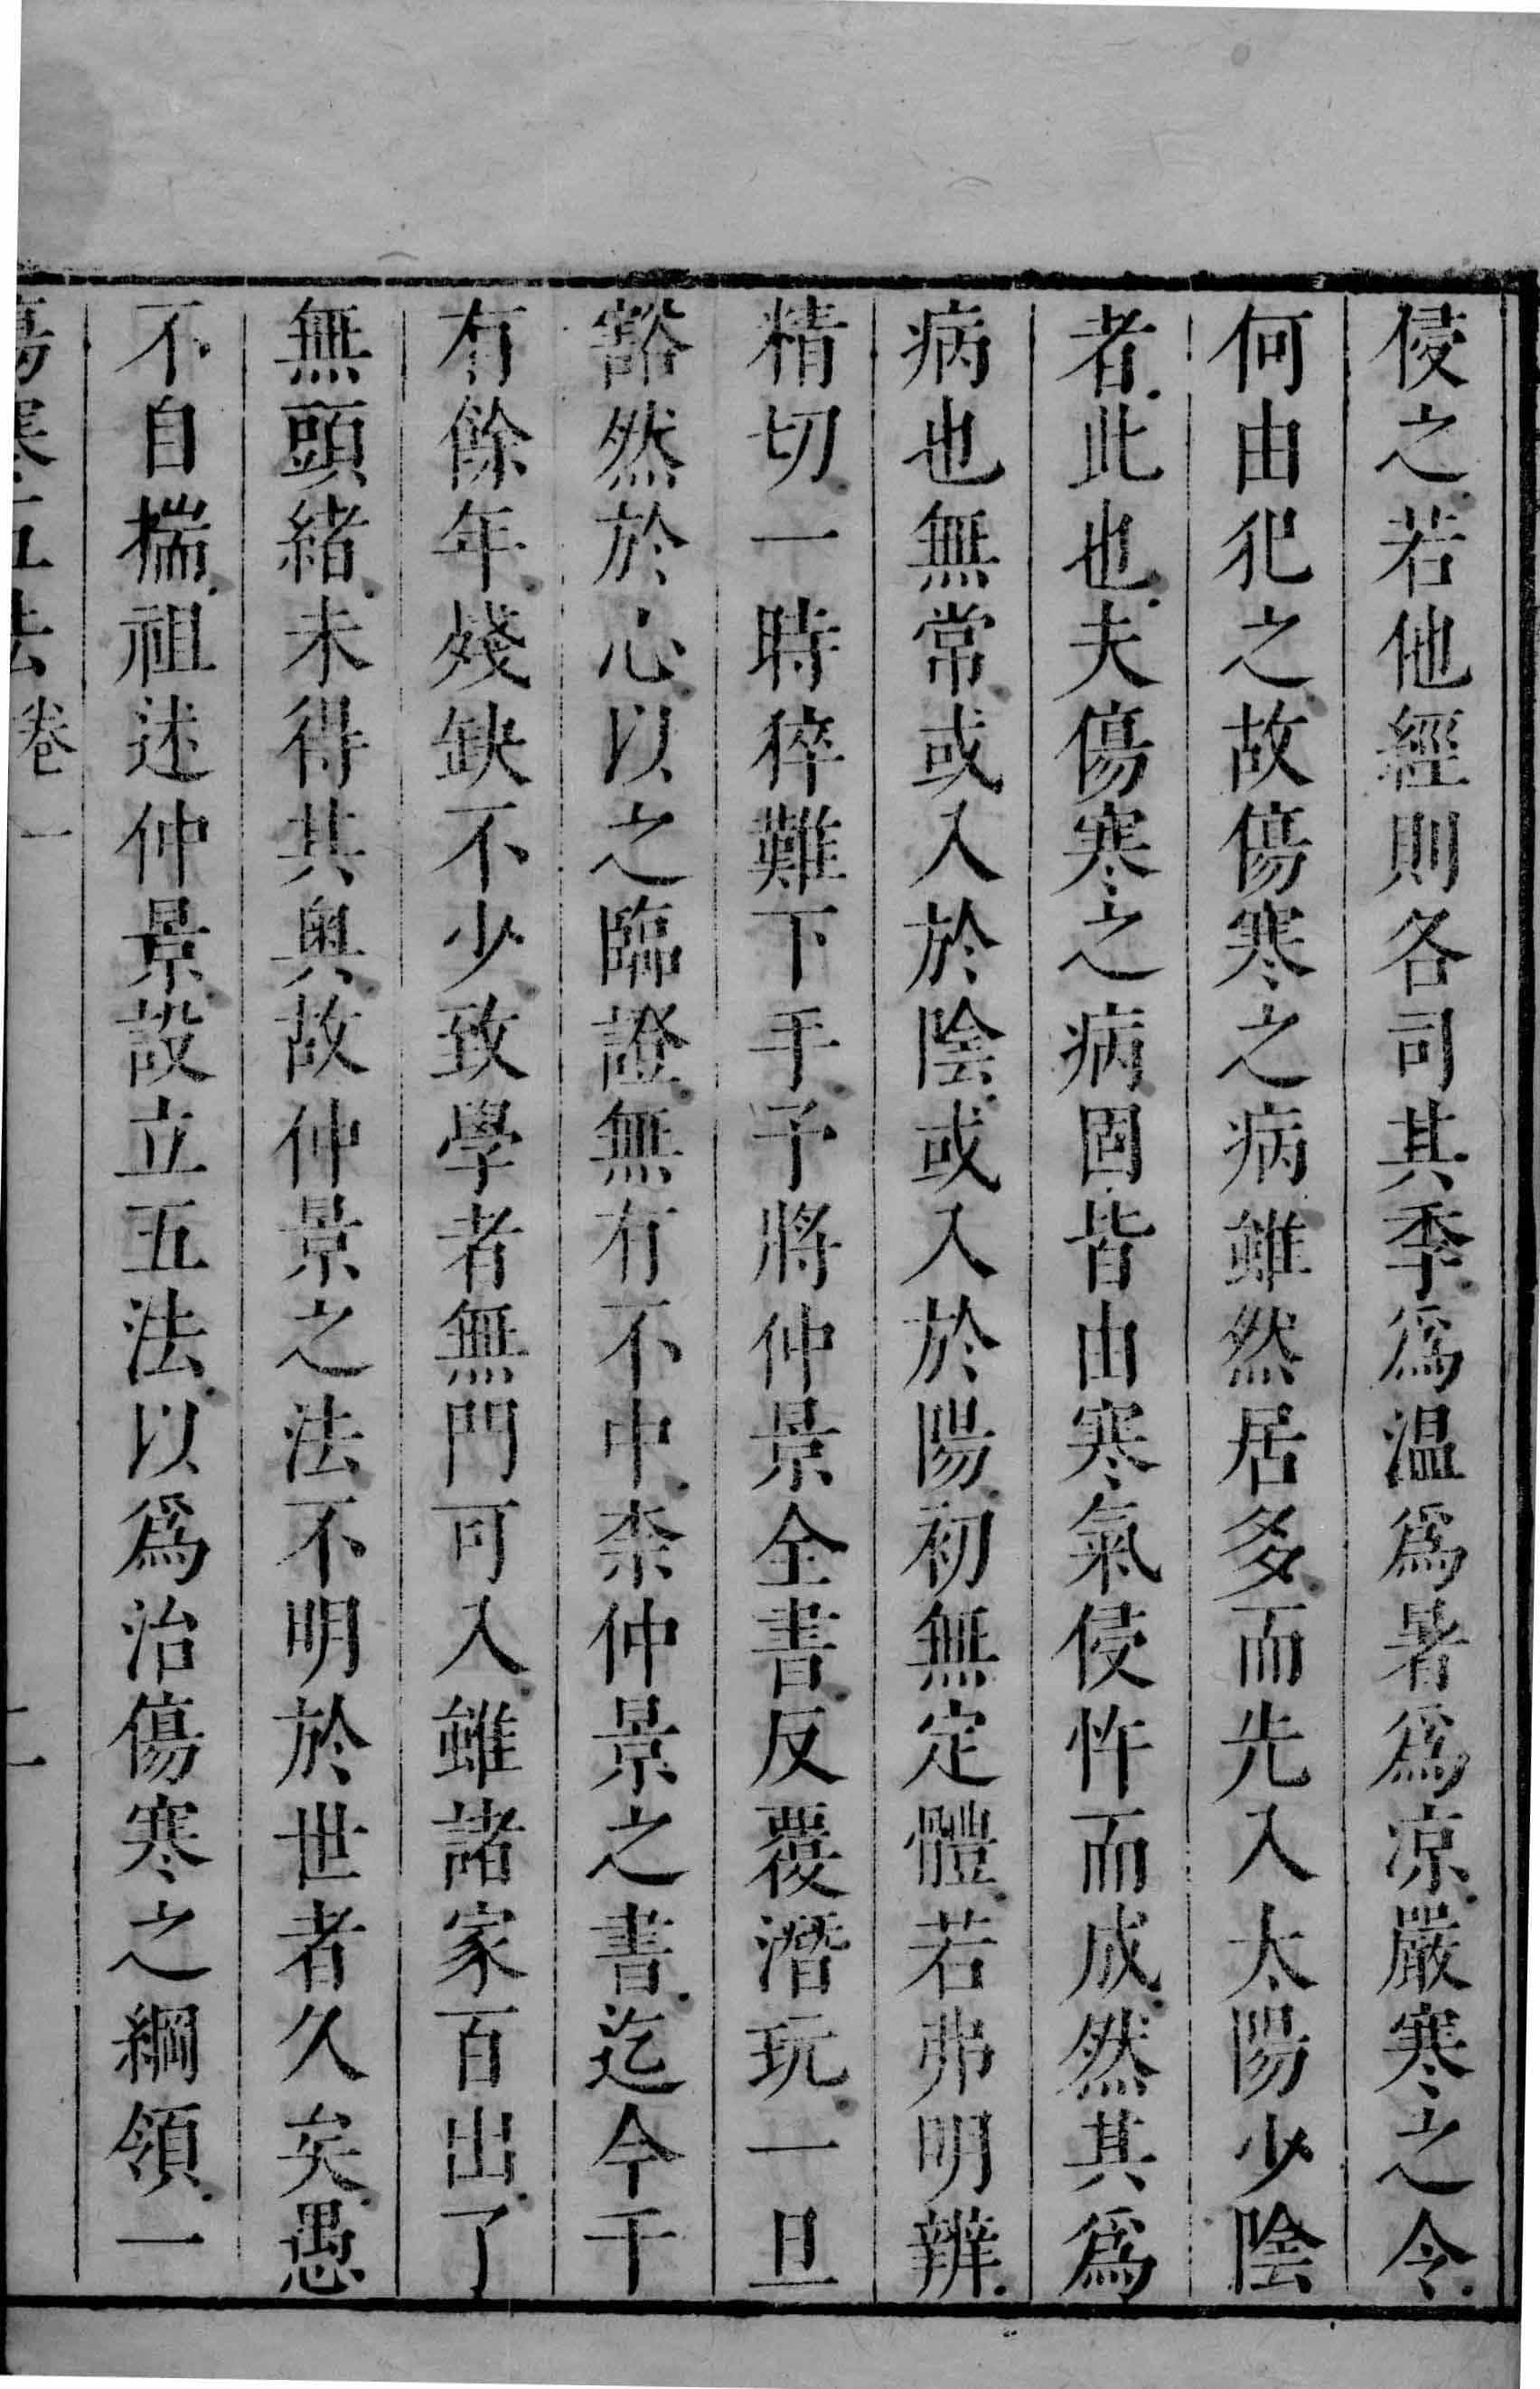 侵之若他經則各司其季爲温爲暑爲凉嚴寒之令
何由犯之故傷寒之病雖然居多而先入太陽少陰
者此也夫傷寒之病固皆由寒氣侵忤而成然其爲
病也無常或入於陰或入於陽初無定體若弗明辨
精切一時猝難下手予將仲景全書反覆潛玩一旦
豁然於心以之臨證無有不中柰仲景之書迄今千
有餘年殘缺不少致學者無門可入雖諸家百出了
無頭緒未得其奥故仲景之法不明於世者久矣愚
不自揣祖述仲景設立五法以爲治傷寒之綱領一
傷寒五法 卷一 二